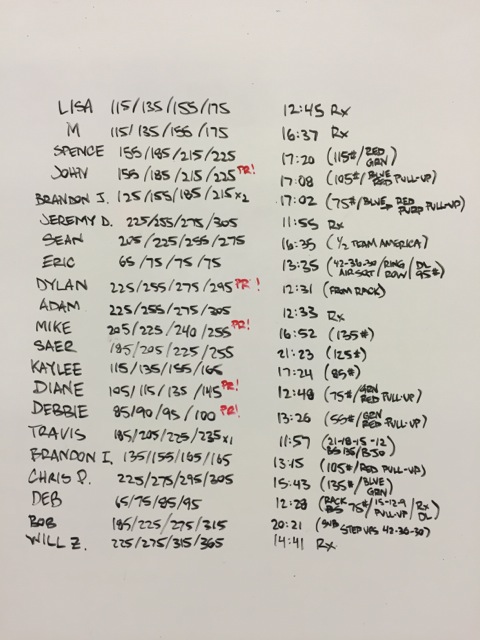 LISA 115/135/155/175 12:45 Rx
M 115/135/155/175 16:37 Rx
SPENCE 155/185/215/225 17:20 (115#/RED GRN)
JOHN 155/185/215/225 PR! 17:08 (105#/BLUE RED PULL-UP)
BRANDON J. 125/155/185/215x2 17:02 (75#/BLUE→RED PURP PULL-UP)
JEREMY D. 225/255/275/305 11:55 Rx
SEAN 205/225/255/275 16:35 (1/2 TEAM AMERICA)
ERIC 65/75/75/75 13:35 (42-36-30/RING/DL AIRSQT/ROW/95#)
DYLAN 225/255/275/295 PR! 12:31 (FROM RACK)
ADAM 225/255/275/305 12:33 Rx
MIKE 205/225/240/255 PR! 16:52 (135#)
SAER 185/205/225/255 21:23 (125#)
KAYLEE 115/135/155/165 17:24 (85#)
DIANE 105/115/135/145 PR! 12:48 (75#/GRN RED PULL-UP)
DEBBIE 85/90/95/100 PR! 13:26 (55#/GRN RED PULL-UP)
TRAVIS 185/205/225/235x1 11:57 (21-18-15-12) BS 135/BJ30)
BRANDON I. 135/155/165/165 13:15 (105#/RED PULL-UP)
CHRIS P. 225/275/295/305 15:43 (135#/BLUE GRN)
DEB 65/75/85/95 12:28 (RACK BS 75#/15-12-9 PULL-UP/Rx DL)
BOB 185/225/275/315 20:21 (SUB STEP UPS 42-36-30)
WILL Z. 225/275/315/365 14:41 Rx